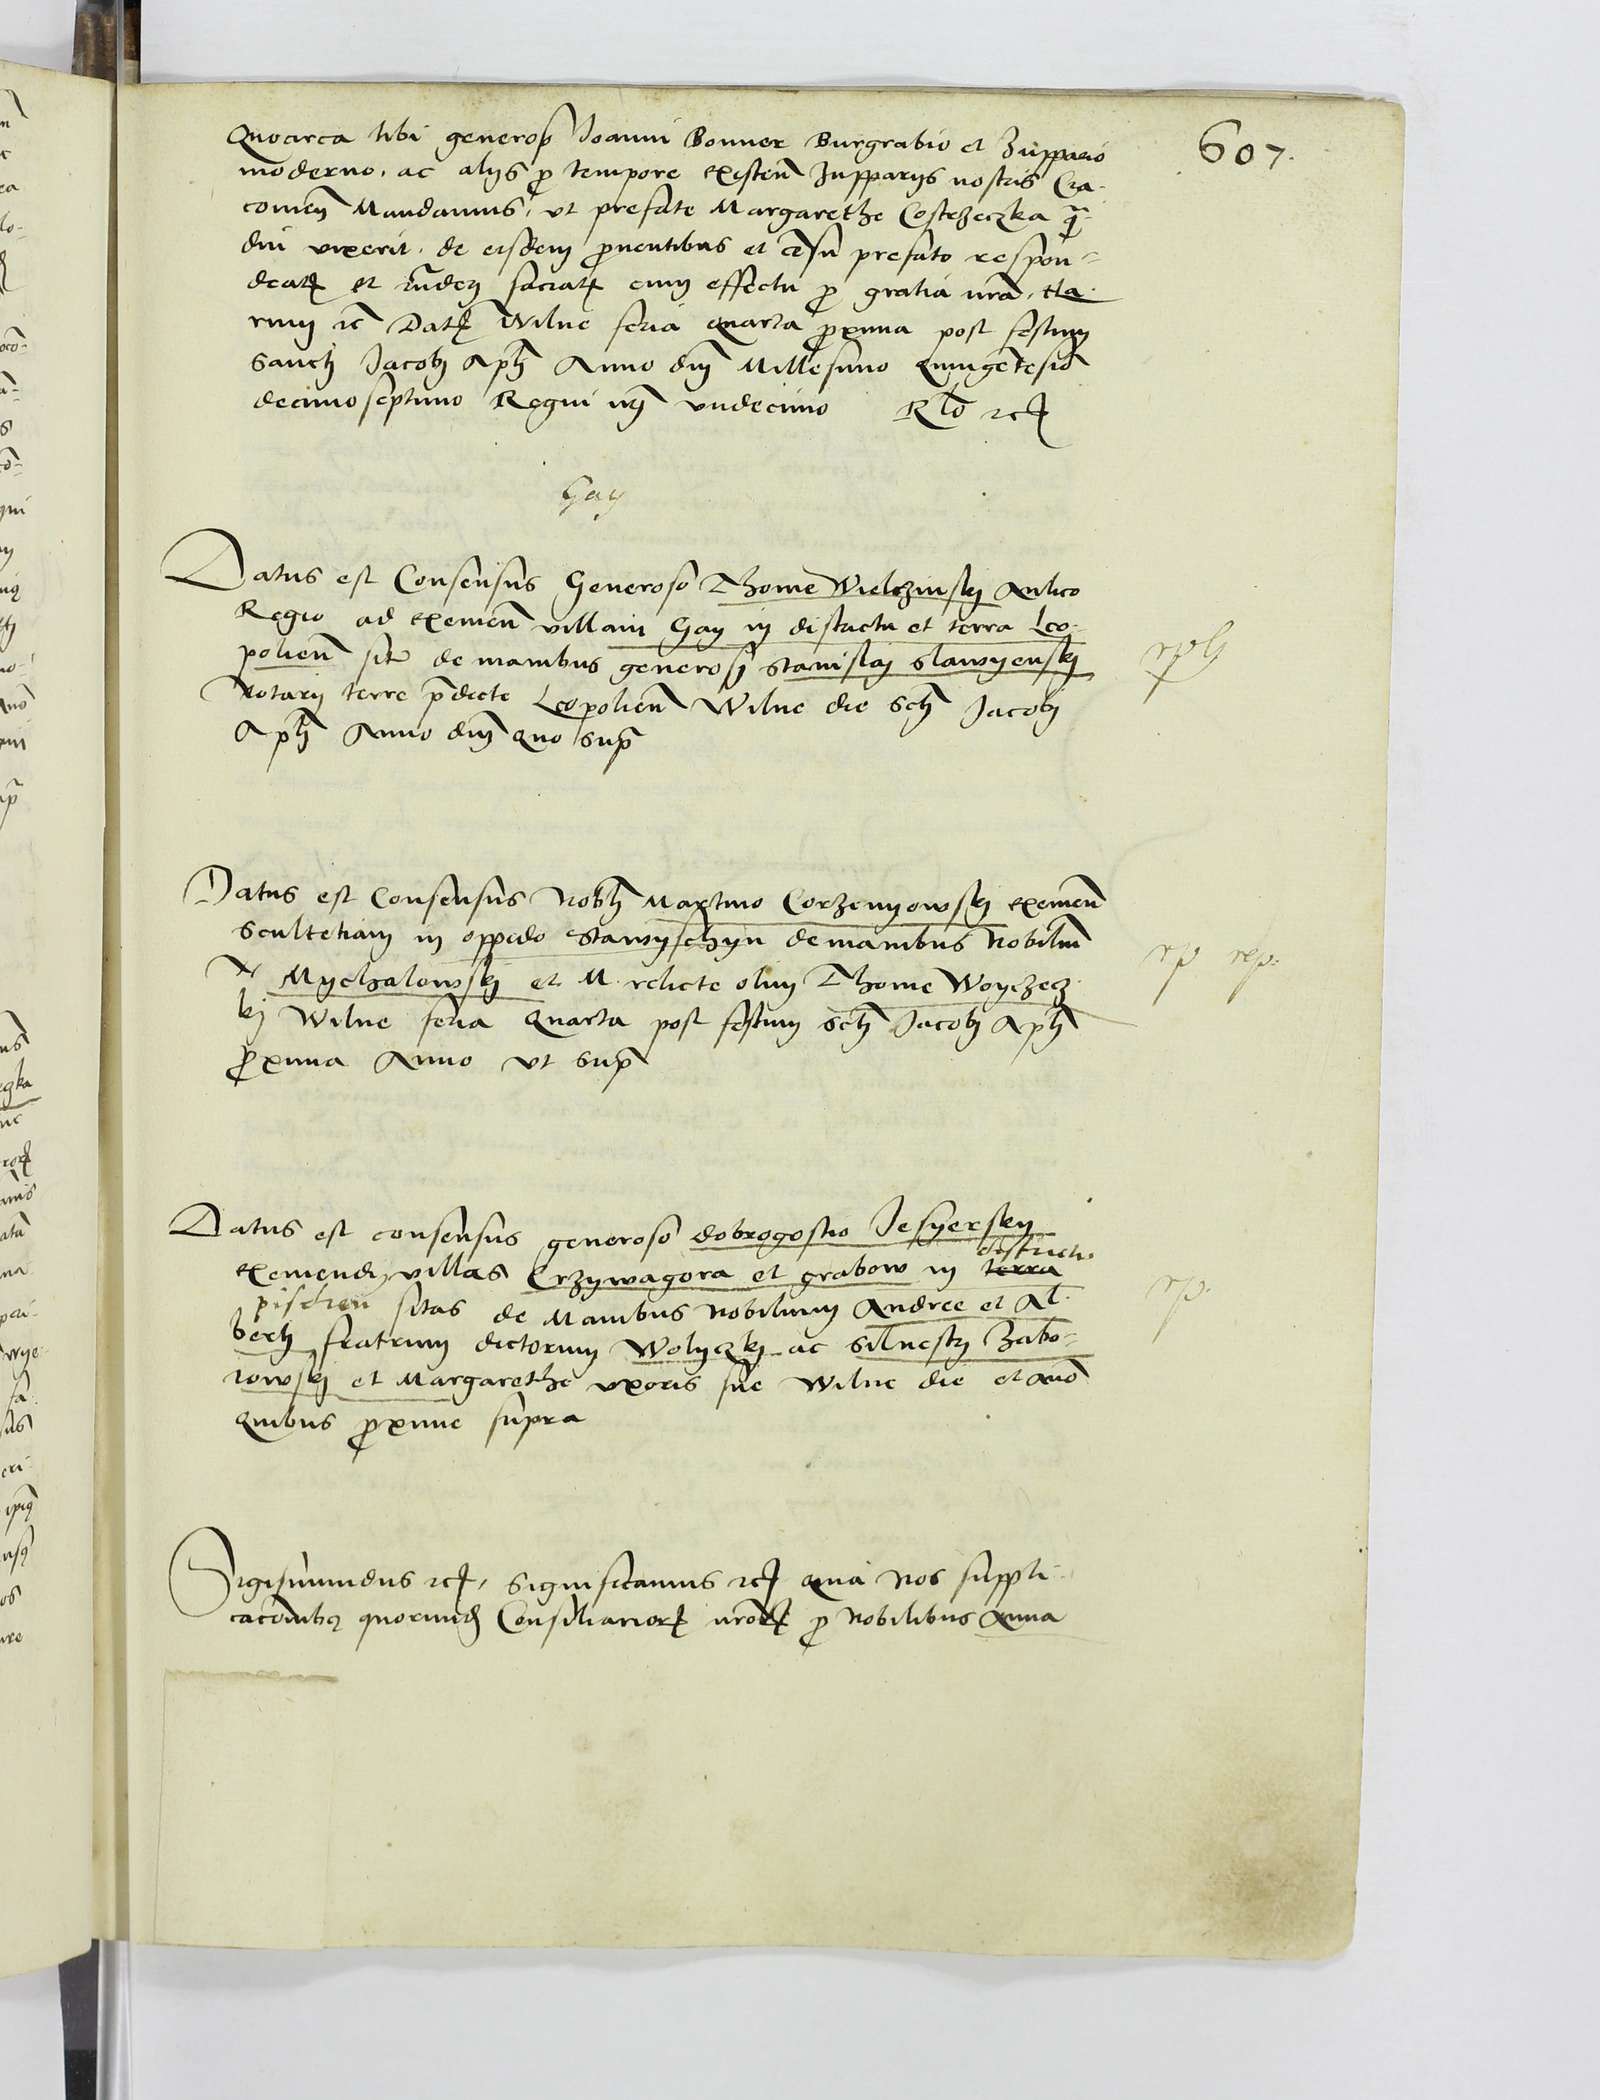 607.
Quocirca tibi generoso Joanni Bonner Burgrabio et Zuppario
moderno, ac alijs ꝓ tempore existen̄ Zupparijs nostris Cra-
comen̄ Mandamus, ut prefate Margarethe Costezeczka
diu vixerit, de eisdem ꝓuentibus et cēsu prefato respon-
deatꝭ et faciatꝭ cum effectu ꝓ gratia nrā. Ha-
rum ꝛc̄ Datꝭ Wilne feria quarta ꝓxima post festum
Sancti Jacobi Apli Anno dnī Millesimo Quingētesīo
decimoseptimo Regni nrī vndecimo Rlō ꝛcꝭ
Gay
Datus est Consensus Generoso Thome Wielczinskj Aulico
Regio ad eximen̄ villam Gay in districtu et terra Leo-
polien̄ site de manibus generosi Stanislaj Slawyenskj
Notarij terre p̄dicte Leopolien̄ Wilne die Scti Jacobi
Apli Anno dnī quo sup̄
Datus est Consensus Nobli Martino Corzenyowskj eximen̄
Scultetiam in oppido Stawyschyn de manibus Nobiliū
N Mychalowskj et M. relicte olim Thome Woyczecz-
kj Wilne feria quarta post festum Scti Jacobi Apli
ꝓxima Anno vt sup̄
rp rep.
Datus est consensus generoso dobrogostio Jesyerskj
districtu
eximendi villas Crzywagora et grabow in terra
pisdren sitas de Manibus Nobilium Andree et Al-
berti fratrum dictorum Wolyczkj ac Siluestri Zabo-
rowskj et Margarethe vxoris sue Wilne die et anō
quibus ꝓxime supra
rp.
Sigismundus ꝛcꝭ, Significamus ꝛcꝭ quia Nos suppli-
cacōnibꝰ quorundā Consiliariorꝭ nrōrꝭ ꝓ Nobilibus Anna